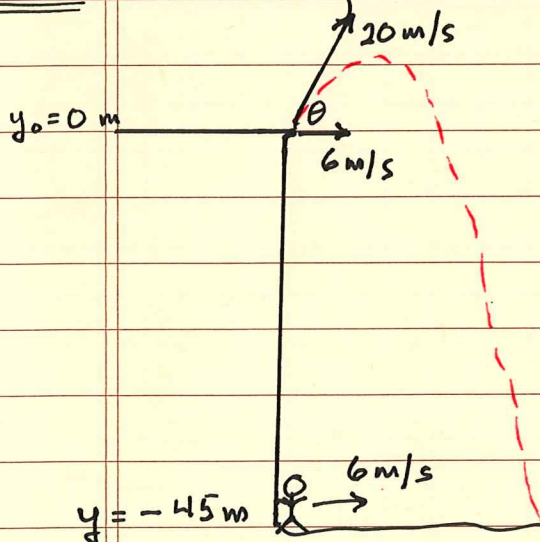 20 m/s
θ
y₀ = 0 m
6 m/s
6 m/s
y = - 45 m